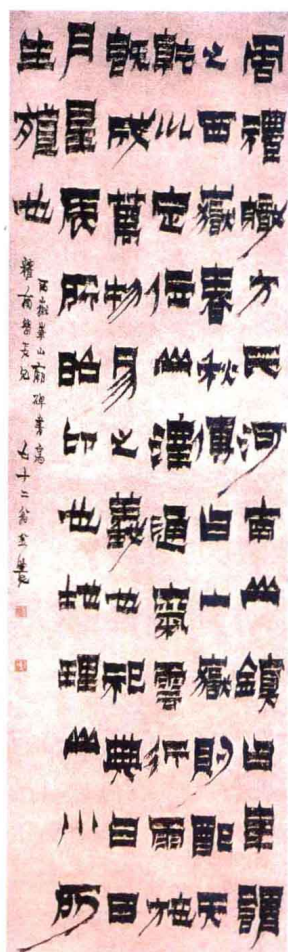 周禮職方氏河南山鎮曰華謂
之西嶽春秋傳曰山嶽則配天
乾川定位山澤通氣雲行雨施
既成萬物易之義也祀典曰日
月星辰所昭卬也地理山川所
生殖也
西嶽華山廟碑書寫
七十二翁金農